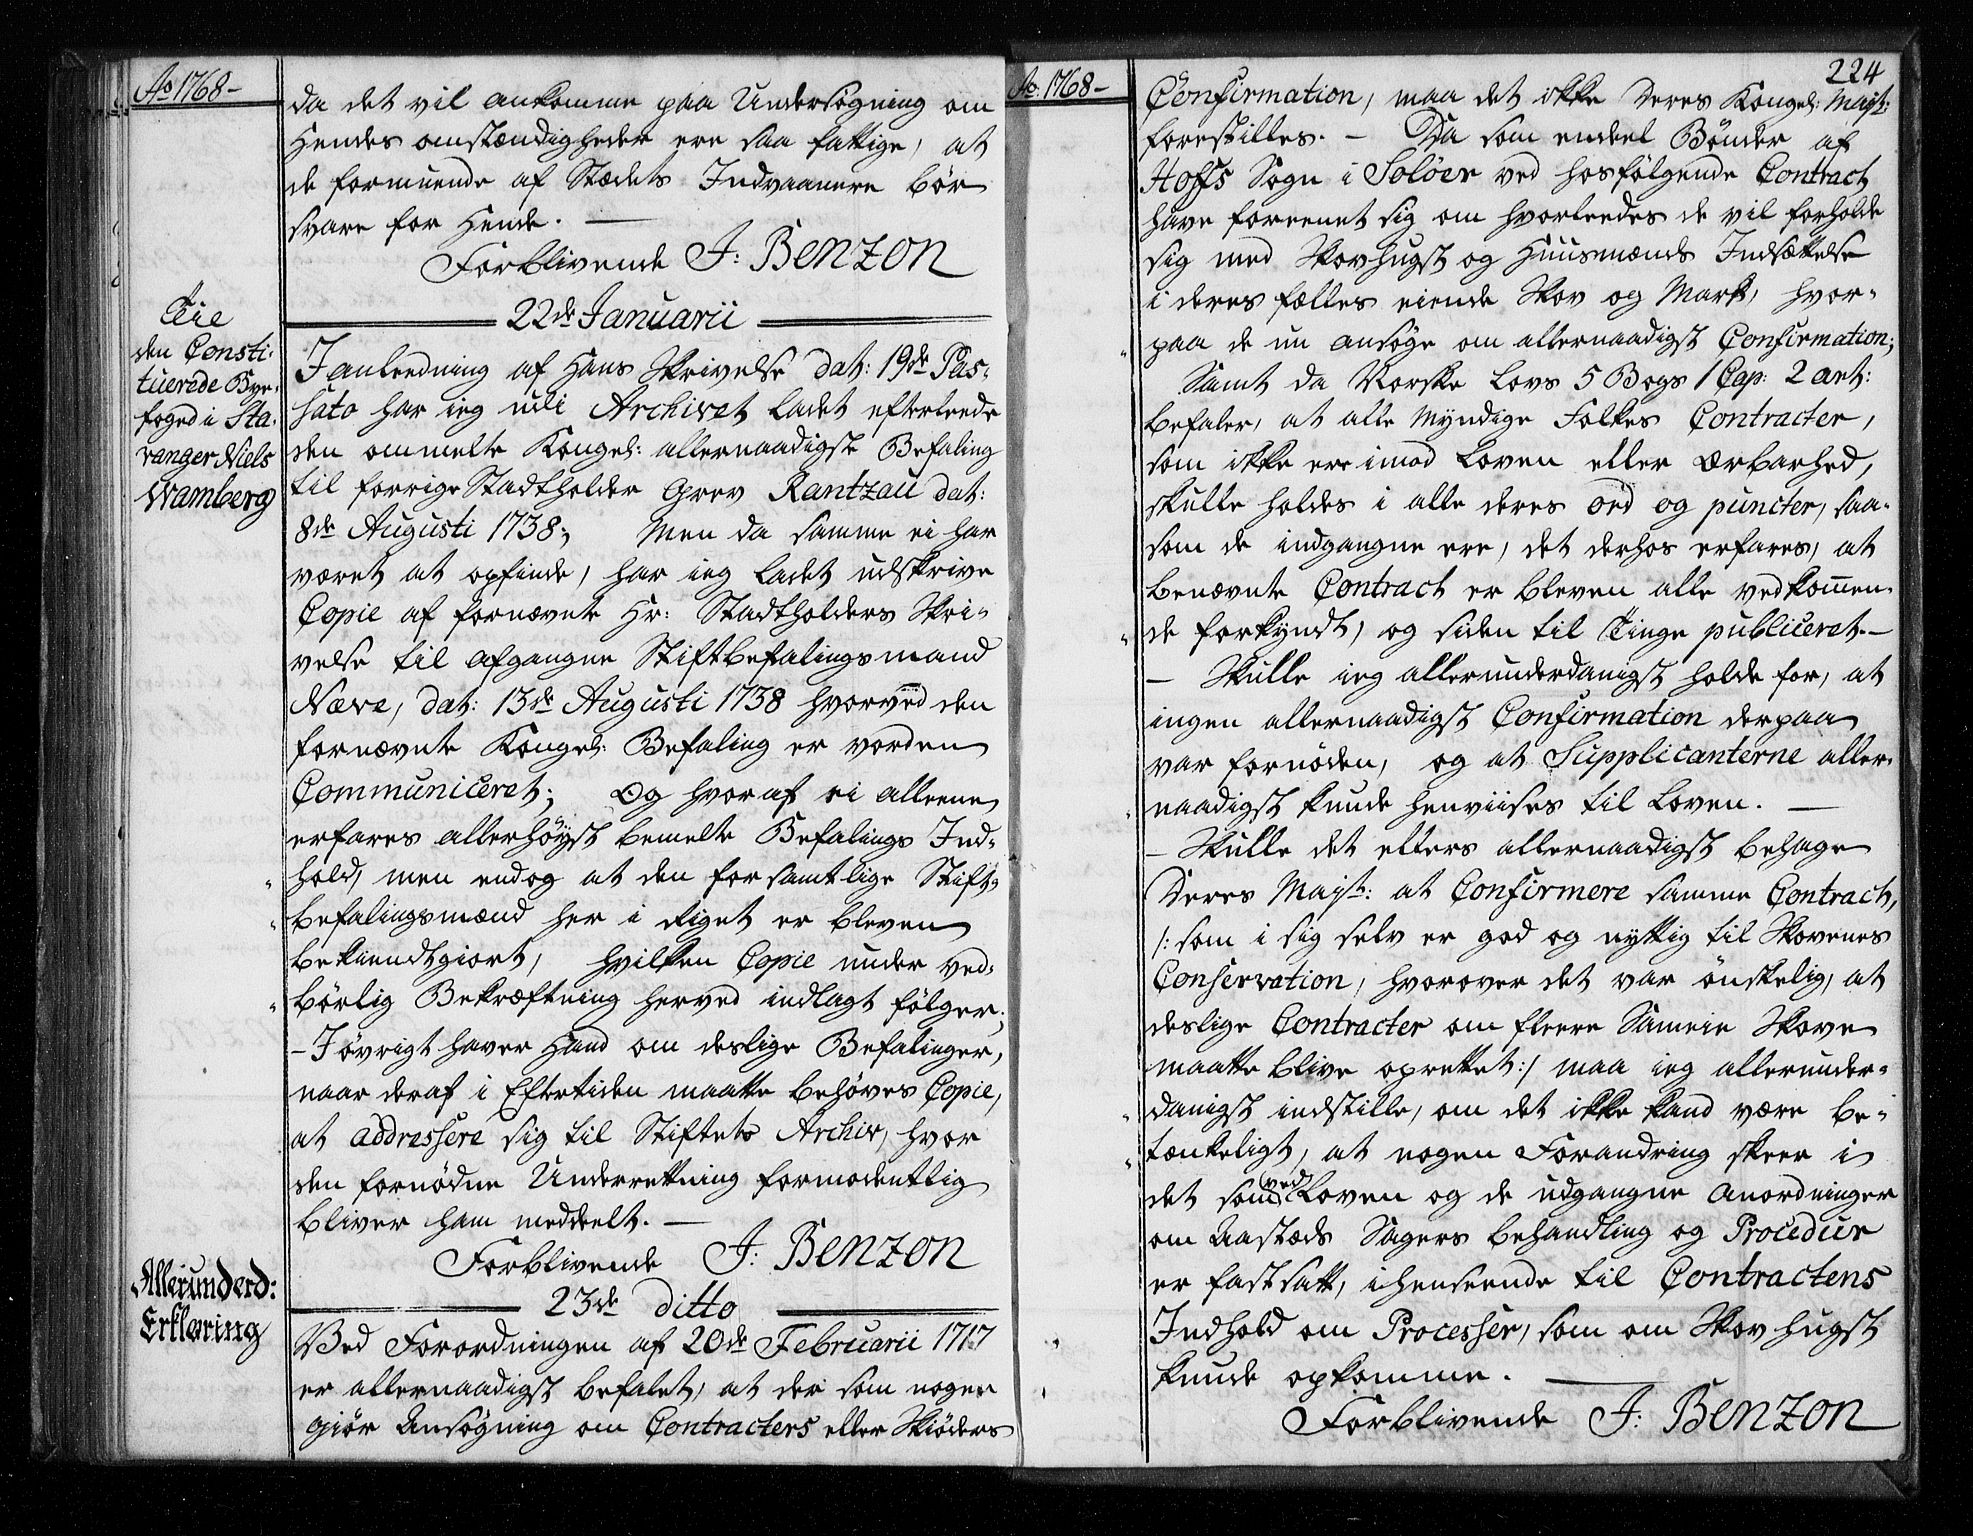 Ao 1768-
da det vil ankomme paa Undersøgning om
Hendes omstændigheder ere saa fattige, at
de formuende af Stædets Indvaanere bør
svare for Hende. —
Forblivende J: Benzon
22de Januarii
Til
den Consti-
tuerede Bye-
foged i Sta-
vanger Niels
Wamberg
I anleedning af Hans Skrivelse dat: 19de Pas-
sato har ieg udi Archivet ladet efterleede
den ommelte Kongel: allernaadigste Befaling
til forrige Stadtholder Grev Rantzau dat:
8de Augusti 1738; Men da samme ei har
været at opfinde, har ieg ladet udskrive
Copie af fornævnte Hr: Stadtholders Skri-
velse til afgangne Stiftbefalingsmand
Næve, dat: 13de Augusti 1738 hvorved den
fornævnte Kongel: Befaling er vorden
Communiceret; Og hvoraf ei alleene
erfares allerhöyst bemelte Befalings Ind-
hold, men endog at den for samtlige Stift-
befalingsmænd her i Riget er bleven
bekiendtgiort, hvilken Copie under ved-
börlig Bekræftning herved indlagt fölger;
- I övrigt haver Hand om deslige Befalinger,
naar deraf i Eftertiden maatte behöves Copie,
at addressere sig til Stiftets Archiv, hvor
den fornödne Underrettning formodentlig
bliver ham meddeelt. —
Forblivende J: Benzon
23de ditto
Allerunderd:
Erklæring
Ved Forordningen af 20de Februarii 1717
er allernaadigst befalet, at der som nogen
giör Ansøgning om Contracters eller Skiöders
Ao. 1768-
224
Confirmation, maa det ikke Deres Kongel: Majt:
forestilles. - Da som endeel Bönder af
Hoffs Sogn i Solöer ved hosfölgende Contract
have foreenet sig om hvorleedes de vil forholde
sig med Skovhugst og Huusmænds Indsættelse
i deres fælles eiende Skov og Mark, hvor-
paa de nu ansöge om allernaadigst Confirmation;
Samt da Norske Lovs 5 Bogs 1 Cap: 2 art:
befaler, at alle Myndige Folkes Contracter,
som ikke ere imod Loven eller Ærbarhed,
skulle holdes i alle deres ord og puncter, saa-
som de indgangne ere, det derhos erfares, at
benævnte Contract er bleven alle vedkom̄en-
de forkyndt, og siden til Tinge publiceret. -
- Skulle ieg allerunderdanigst holde for, at
ingen allernaadigst Confirmation derpaa
var fornöden, og at Supplicanterne aller-
naadigst kunde henviises til Loven. —
- Skulle det ellers allernaadigst behage
Deres Majt: at Confirmere samme Contract,
/: som i sig selv er god og nyttig til Skovenes
Conservation, hvorover det var önskelig, at
deslige Contracter om fleere Sameie Skove
maatte blive oprettet :/ maa ieg allerunder-
danigst indstille, om det ikke kand være be-
tænkeligt, at nogen Forandring skeer i
det som ved Loven og de udgangne Anordninger
om Aastæds Sagers behandling og Procedur
er fastsatt, i henseende til Contractens
Indhold om Processer, som om Skov hugst
kunde opkomme. —
Forblivende J: Benzon